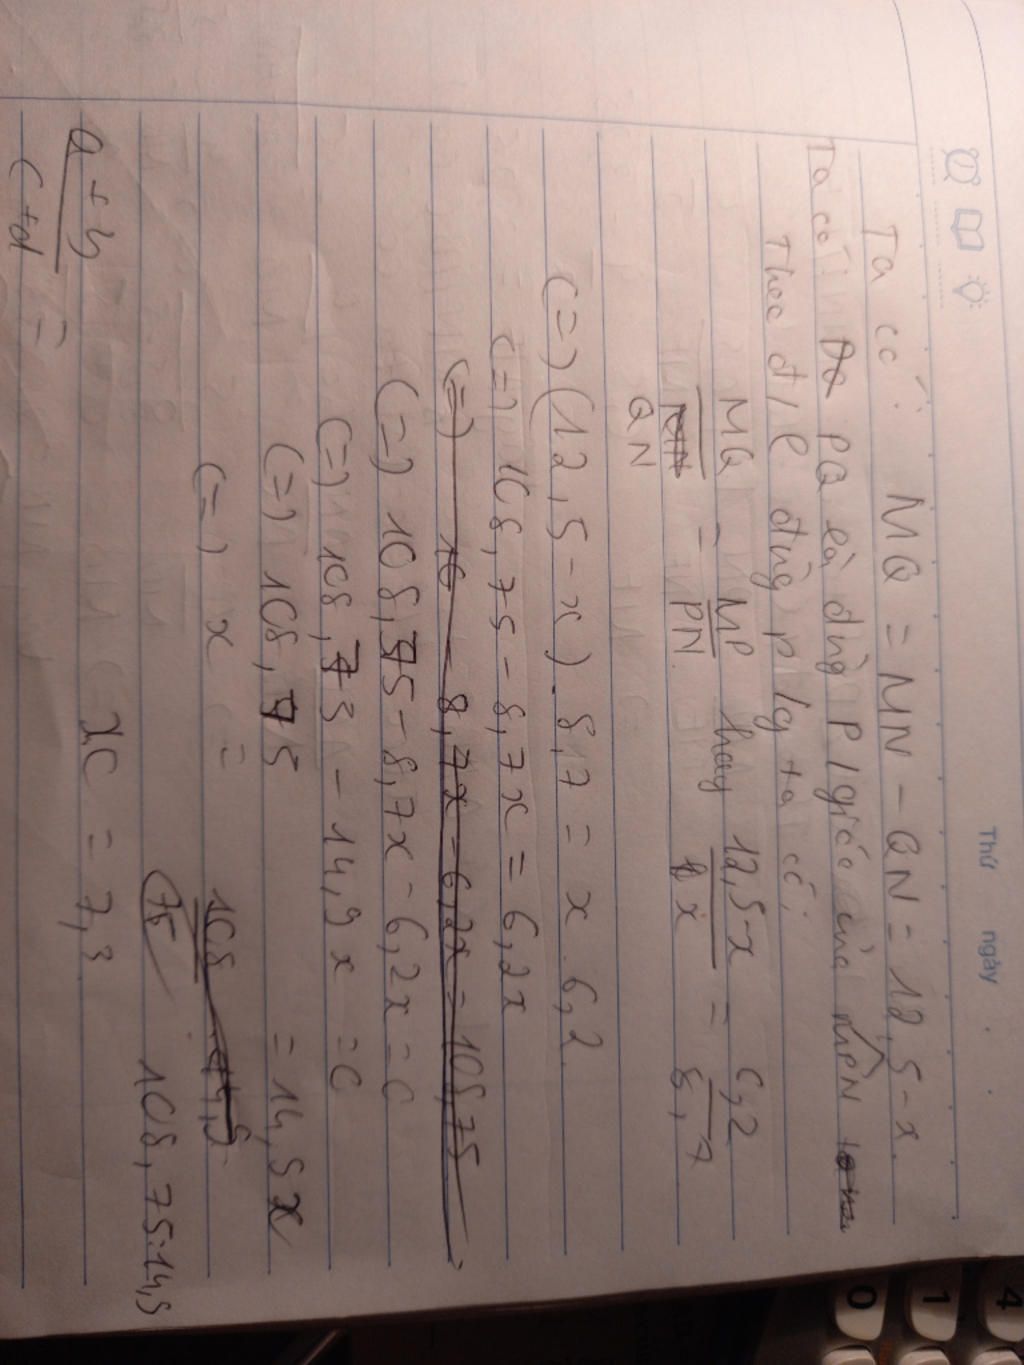 Thứ ngày
Ta có: MQ = MN - QN = 12,5 - x
Ta có: PQ là đường p/giác của MPN
Theo đ/l đường p/g ta có:
MQ/QN = MP/PN hay 12,5-x/x = 6,2/8,7
(=) (12,5 - x). 8,7 = x. 6,2
(=) 108,75 - 8,7x = 6,2x
(=) 108,75 - 8,7x - 6,2x = 0
(=) 108,75 - 14,9x = 0
(=) 108,75 = 14,9x
(=) x =
108,75:14,9
x = 7,3
a+b/c+d =
0
1
4